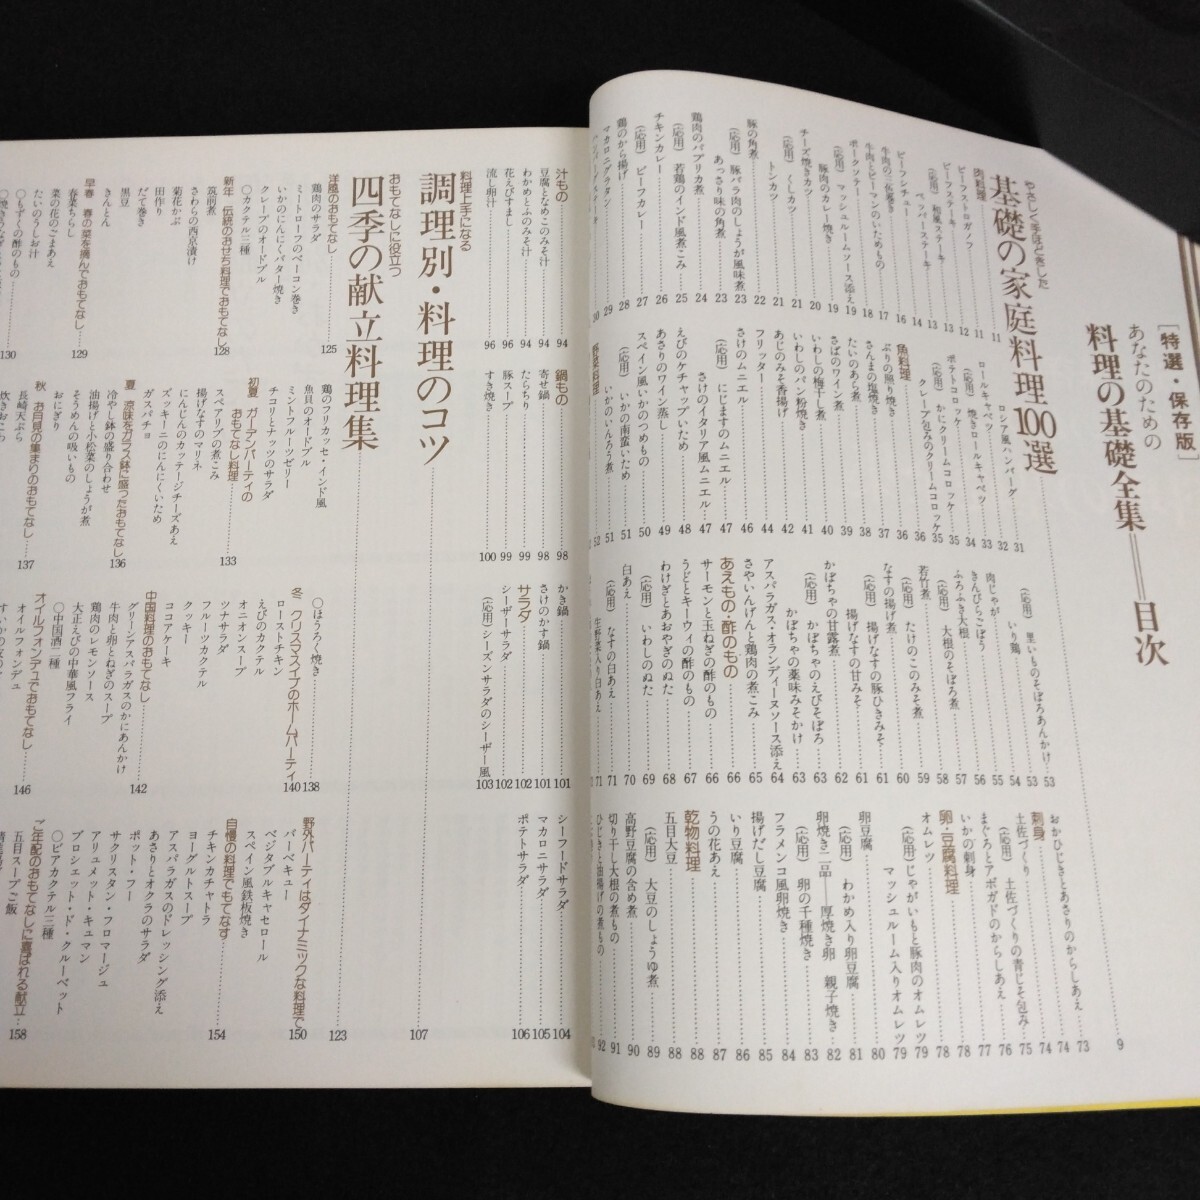 [特選・保存版]
あなたのための
料理の基礎全集＝目次
やさしく手ほどきした
基礎の家庭料理100選
9
肉料理
ビーフストロガノフ 11
ビーフステーキ 12
(応用) 和風ステーキ 13
(応用) ペッパーステーキ 13
ビーフシチュー 14
牛肉の三色巻き 16
牛肉とピーマンのいためもの 17
ポークソテー 18
(応用) マッシュルームソース添え 19
豚肉のカレー焼き 19
チーズ焼きカツ 20
(応用) くしカツ 21
トンカツ 21
豚の角煮 22
(応用) 豚バラ肉のしょうが風味煮 23
あっさり味の角煮 23
鶏肉のパプリカ煮 24
(応用) 若鶏のインド風煮こみ 25
チキンカレー 26
(応用) ビーフカレー 27
鶏のから揚げ 28
マカロニグラタン 29
ロシア風ハンバーグ 31
ロールキャベツ 32
(応用) 焼きロールキャベツ 33
ポテトコロッケ 34
(応用) かにクリームコロッケ 35
クレープ包みのクリームコロッケ 35
魚料理 36
ぶりの照り焼き 36
さんまの塩焼き 37
たいのあら煮 38
さばのワイン煮 39
いわしの梅干し煮 40
いわしのパン粉焼き 41
あじのみそ香揚げ 42
フリッター 44
さけのムニエル 46
(応用) にじますのムニエル 47
さけのイタリア風ムニエル 47
えびのケチャップいため 48
あさりのワイン蒸し 49
スペイン風いかのつめもの 50
(応用) いかの南蛮いため 51
いかのいんろう煮 51
野菜料理 52
(応用) 里いものそぼろあんかけ 53
いり鶏 53
肉じゃが 54
きんぴらごぼう 55
ふろふき大根 56
(応用) 大根のそぼろ煮 57
若竹煮 58
(応用) たけのこのみそ煮 59
なすの揚げ煮 60
(応用) 揚げなすの豚ひきみそ 61
揚げなすの甘みそ 61
かぼちゃの甘露煮 62
(応用) かぼちゃのえびそぼろ 63
かぼちゃの薬味みそかけ 63
アスパラガス・オランディーヌソース添え 64
さやいんげんと鶏肉の煮こみ 65
あえもの・酢のもの 66
サーモンと玉ねぎの酢のもの 66
うどとキーウィの酢のもの 67
わけぎとあおやぎのぬた 68
(応用) いわしのぬた 69
白あえ 70
(応用) なすの白あえ 71
生野菜入り白あえ 71
おかひじきとあさりのからしあえ 73
刺身 74
土佐づくり 74
(応用) 土佐づくりの青じそ包み 75
まぐろとアボガドのからしあえ 76
いかの刺身 77
卵・豆腐料理 78
オムレツ 78
(応用) じゃがいもと豚肉のオムレツ 79
マッシュルーム入りオムレツ 79
卵豆腐 80
(応用) わかめ入り卵豆腐 81
卵焼き二品――厚焼き卵 親子焼き 82
(応用) 卵の千種焼き 83
フラメンコ風卵焼き 84
揚げだし豆腐 85
いり豆腐 86
うの花あえ 87
乾物料理 88
五目大豆 88
(応用) 大豆のしょうゆ煮 89
高野豆腐の含め煮 90
切り干し大根の煮もの 91
ひじきと油揚げの煮もの 92
汁もの 94
豆腐となめこのみそ汁 94
わかめとふのみそ汁 94
花えびすまし 96
流し卵汁 96
鍋もの 98
寄せ鍋 98
たらちり 99
豚スープ 99
すき焼き 100
かき鍋 101
さけのかす鍋 101
サラダ 102
シーザーサラダ 102
(応用) シーズンサラダのシーザー風 103
シーフードサラダ 104
マカロニサラダ 105
ポテトサラダ 106
料理上手になる
調理別・料理のコツ 107
おもてなしに役立つ
四季の献立料理集 123
洋風のおもてなし 125
鶏肉のサラダ
ミートローフのベーコン巻き
いかのにんにくバター焼き
クレープのオードブル
○カクテル三種
新年 伝統のおせち料理でおもてなし 128
筑前煮
さわらの西京漬け
菊花かぶ
田作り
だて巻き
黒豆
きんとん
早春 春の菜を摘んでおもてなし 129
春菜ちらし
菜の花のごまあえ
たいのうしお汁
○もずくの酢のもの
130
鶏のフリカッセ・インド風
魚貝のオードブル
ミントフルーツゼリー
チコリとナッツのサラダ
初夏 ガーデンパーティの
おもてなし料理 133
スペアリブの煮こみ
揚げなすのマリネ
にんじんのカッテージチーズあえ
ズッキーニのにんにくいため
ガスパチョ
夏 涼味をガラス鉢に盛ったおもてなし 136
冷やし鉢の盛り合わせ
油揚げと小松菜のしょうが煮
そうめんの吸いもの
おにぎり
秋 お月見の集まりのおもてなし 137
長崎天ぷら
炊きおこわ
○ほうろく焼き 138
冬 クリスマスイブのホームパーティ 140
ローストチキン
えびのカクテル
オニオンスープ
ツナサラダ
フルーツカクテル
クッキー
ココアケーキ
中国料理のおもてなし 142
グリーンアスパラガスのかにあんかけ
牛肉と卵とねぎのスープ
鶏肉のレモンソース
大正えびの中華風フライ
○中国酒二種
オイルフォンデュでおもてなし 146
オイルフォンデュ
野外パーティはダイナミックな料理で 150
バーベキュー
ベジタブルキャセロール
スペイン風鉄板焼き
自慢の料理でもてなす 154
チキンカチャトラ
ヨーグルトスープ
アスパラガスのドレッシング添え
あさりとオクラのサラダ
ポット・フー
サクリスタン・フロマージュ
アリュメット・キュマン
ブロシェット・ド・クルーベット
○ビアカクテル三種
ご年配のおもてなしに喜ばれる献立 158
五目スープご飯